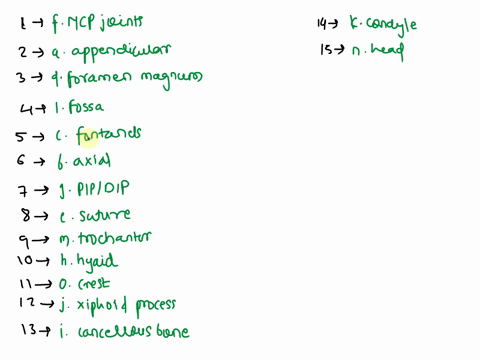 1 → f. MCP joints
2 → a. appendicular
3 → d. foramen magnum
4 → l. fossa
5 → c. fontanels
6 → b. axial
7 → g. PIP/DIP
8 → e. suture
9 → m. trochanter
10 → h. hyaid
11 → o. crest
12 → j. xiphoid process
13 → i. cancellous bone
14 → k. condyle
15 → n. head